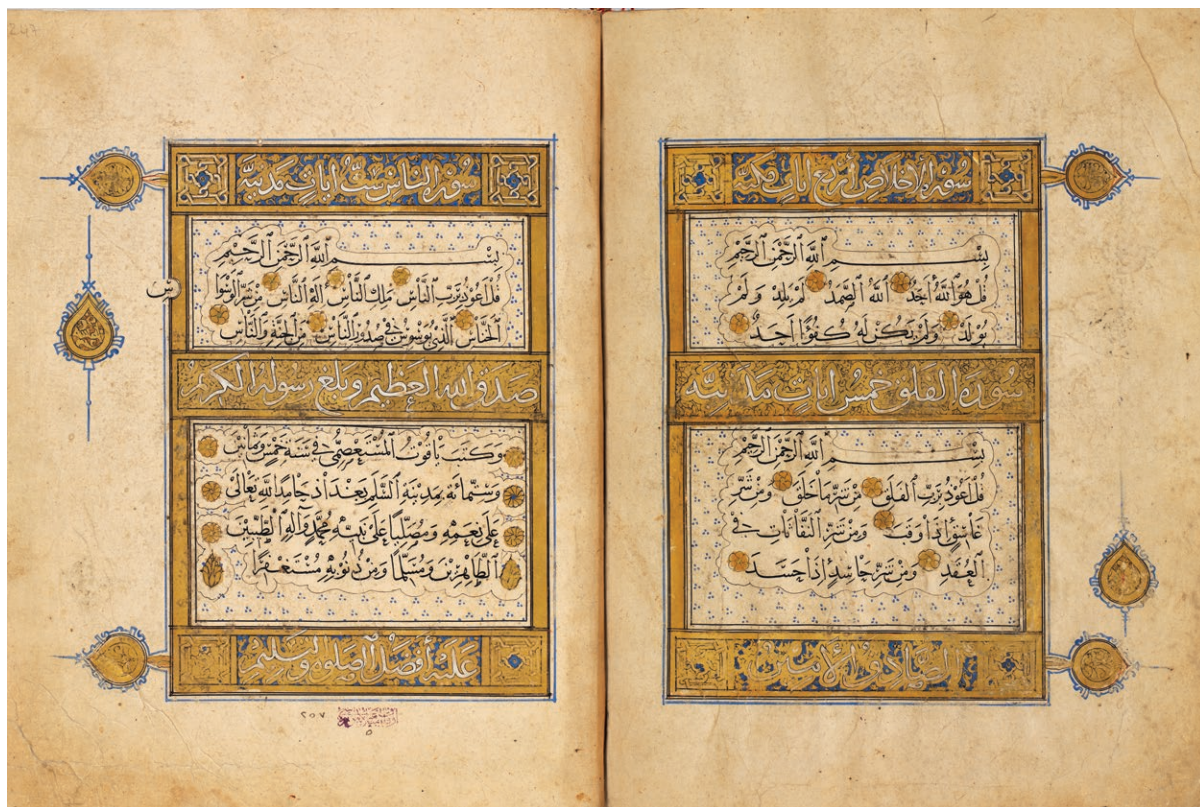 سورة الإخلاص أربع ايات مكية
بسم الله الرحمن الرحيم
قل هو الله أحد الله الصمد لم يلد ولم
يولد ولم يكن له كفوا أحد
سورة الفلق خمس ايات مدنية
بسم الله الرحمن الرحيم
قل أعوذ برب الفلق من شر ما خلق ومن شر
غاسق إذا وقب ومن شر النفاثات في
العقد ومن شر حاسد إذا حسد
الصادق الأمين
سورة الناس ست ايات مدنية
بسم الله الرحمن الرحيم
قل أعوذ برب الناس ملك الناس إله الناس من شر الوسوا
س
الخناس الذي يوسوس في صدور الناس من الجنة والناس
صدق الله العظيم وبلغ رسوله الكريم
وكتب ياقوت المستعصمي في سنة خمس وثمانين
وستمائة بمدينة السلم بغداذ حامدا لله تعالى
على نعمه ومصليا على نبيه محمد وآله الطيبين
الطاهرين ومسلما ومن ذنوبه مستغفرا
عليه أفضل الصلوة والتسليم
٢٥٧
247